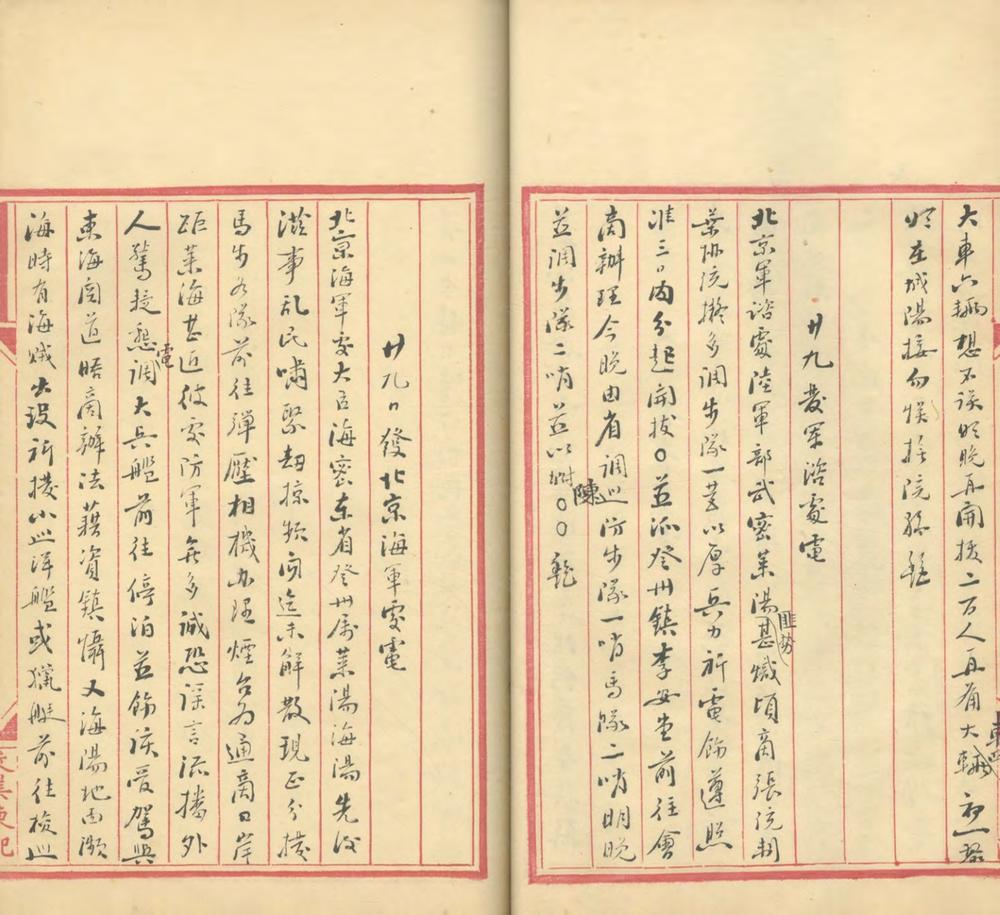 大車六輛想不誤明晚再開拔二百人再補大車四輛初一務
於在城陽接勿悞接院孫 艷
廿九發軍諮處電
北京軍諮處陸軍部武密萊陽匪勢甚熾頃商張統制
葉協統擬多調步隊一營以厚兵力祈電飭遵照
准三日內分起開拔〇並派登州鎮李安堂前往會
商辦理今晚由省調巡防步隊一哨馬隊二哨明晚
並調步隊二哨並以附陳〇〇 艷
廿九日發北京海軍處電
北京海軍處大臣海密東省登州屬萊陽海陽先後
滋事亂民嘯聚劫掠頻聞迄未解散現正分撥
馬步各隊前往彈壓相機办理煙台為通商口岸
距萊海甚近彼處防軍無多誠恐謡言流播外
人驚擾懇電調大兵艦前往停泊並飭該管駕與
東海關道晤商辦法藉資鎮懾又海陽地面瀕
海時有海賊出没祈撥小巡洋艦或獵艇前往檢巡